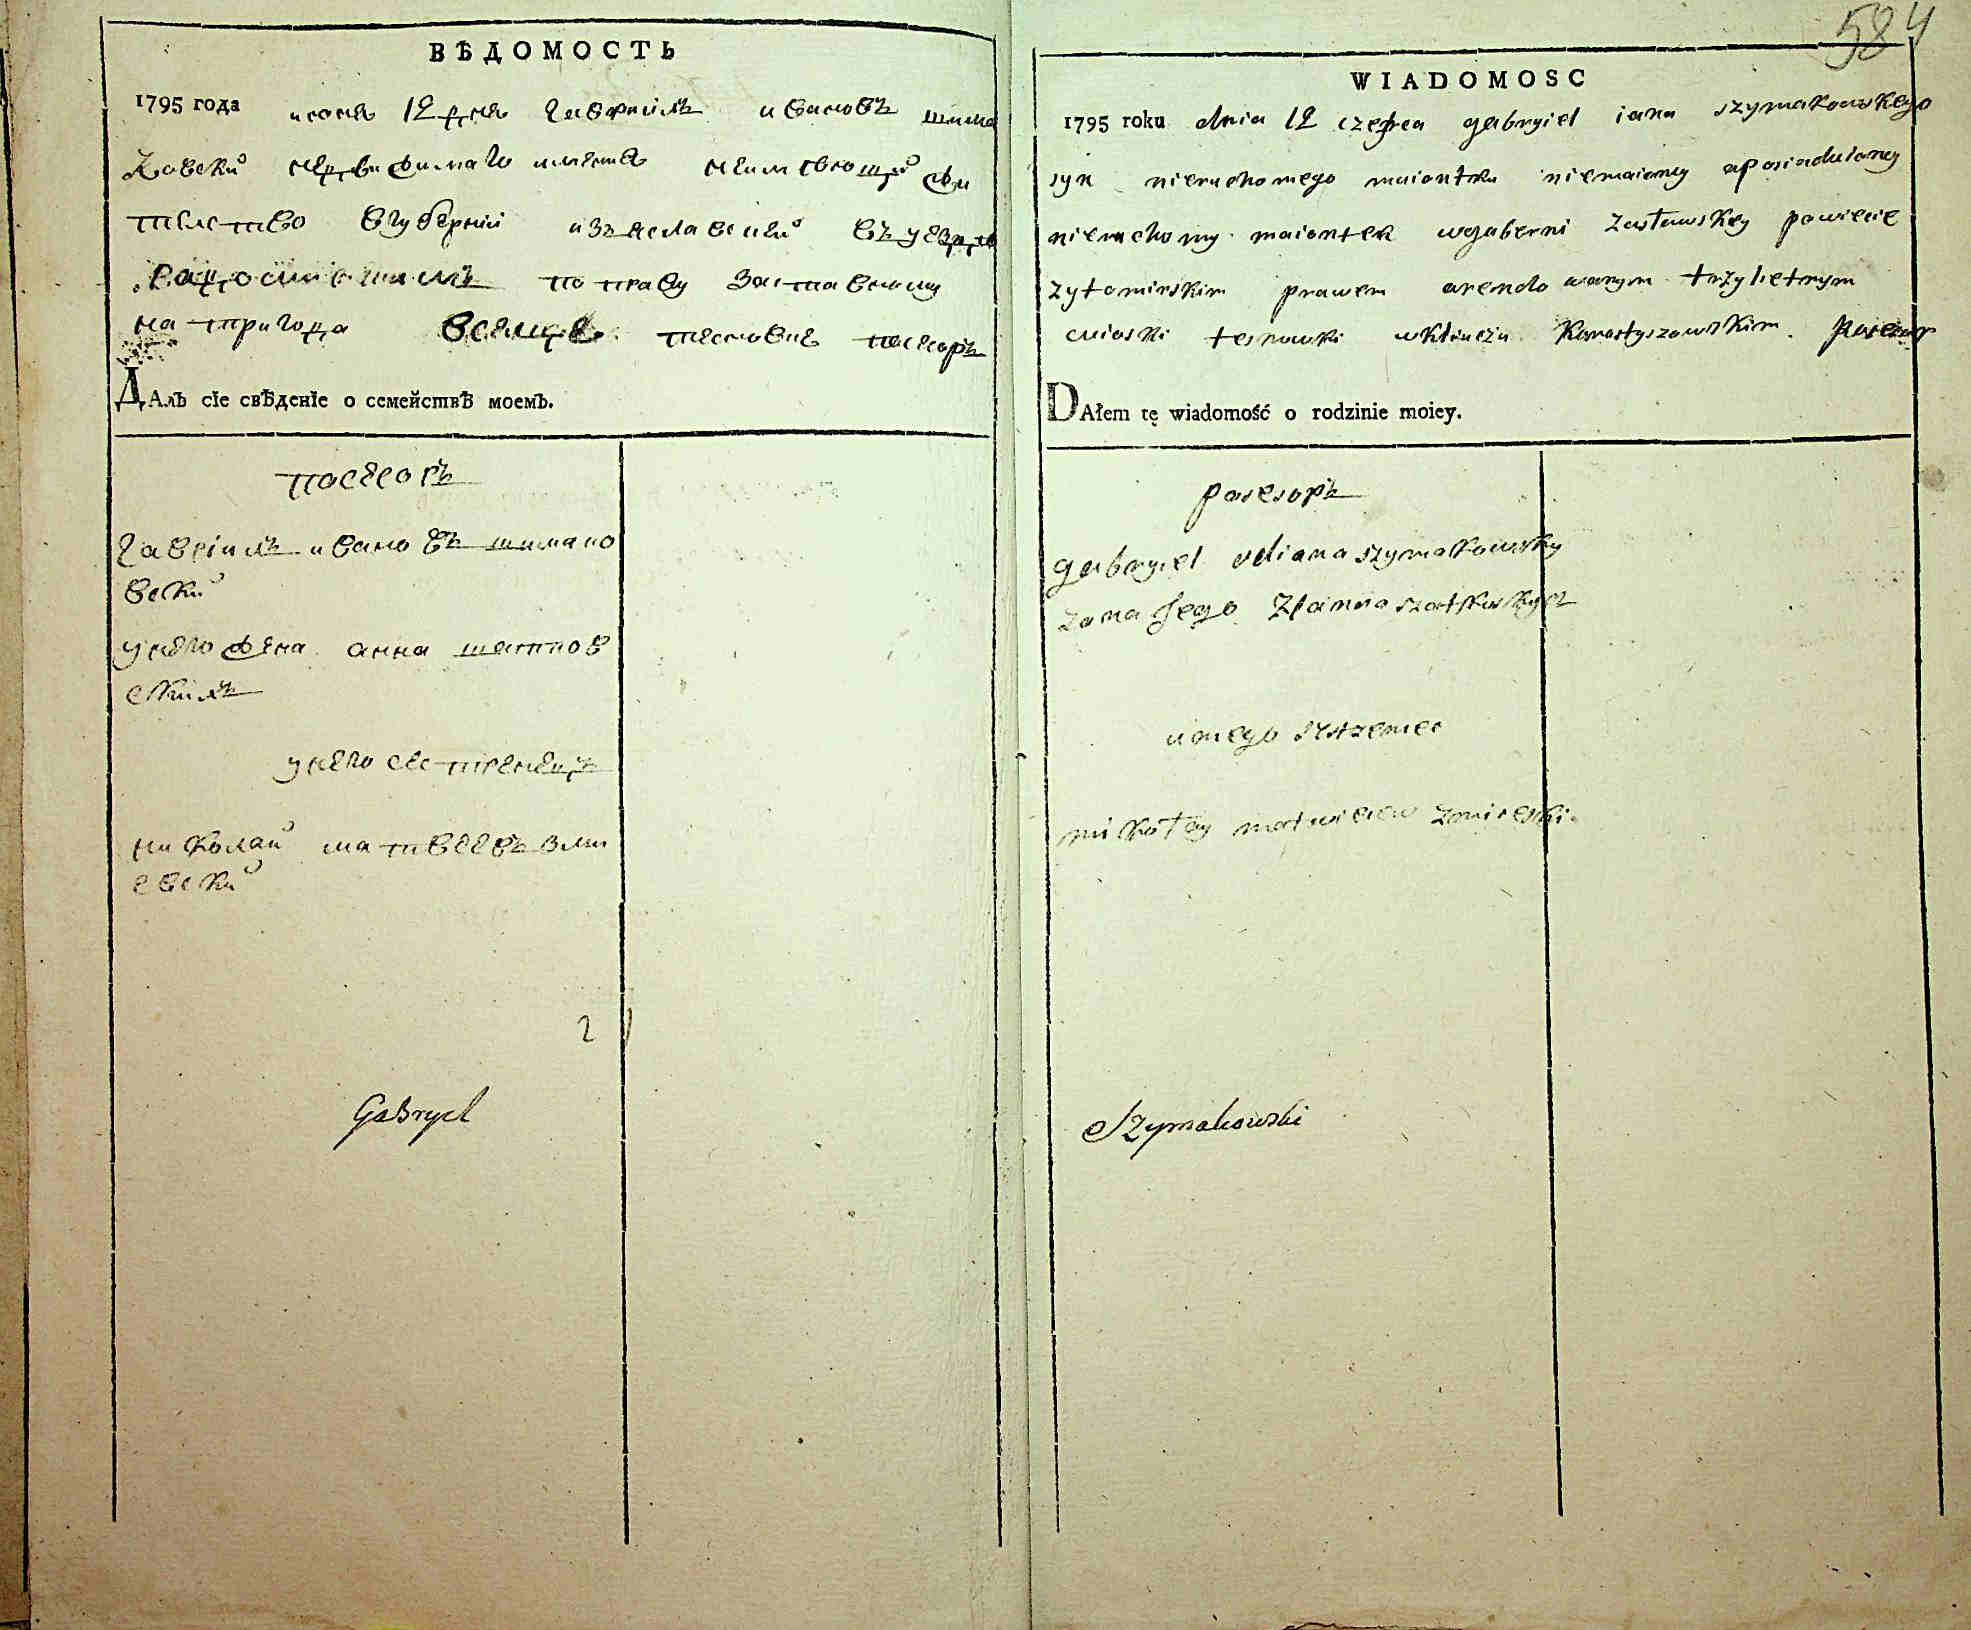 ВѢДОМОСТЬ
1795 года июня 12 дня гавриилъ ивановъ шима
ковски недвижимаго имения неимеющий жи
телство вгубернии изяславской въ уезде
по праву заставному
на три года теснове посесоръ
ДАлъ сіе свѣденіе о семействѣ моемъ.
посесоръ
гавриилъ ивановъ шимако
вски
унего жена анна шатков
скихъ
унего сестренецъ
николай матвеевъ зми
евски
2
Gabryel
584
WIADOMOSC
1795 roku dnia 12 czerwca gabryiel iana szymakowskego
syn nieruchomego maiontku niemaioncy aposiadaioncy
nieruchomy maiontek wguberni Zasławskey powiecie
zytomirskim prawem arendowanym trzyletnym
wioski tesnowki wkluczu Korostyszowskim posesor
DAłem tę wiadomość o rodzinie moiey.
posesoръ
gabryiel zdiana szymakowsky
zona Jego Zſanna szatkowskych
unego sestzeniec
mikołay matwieiew zmiewski
Szymakowski